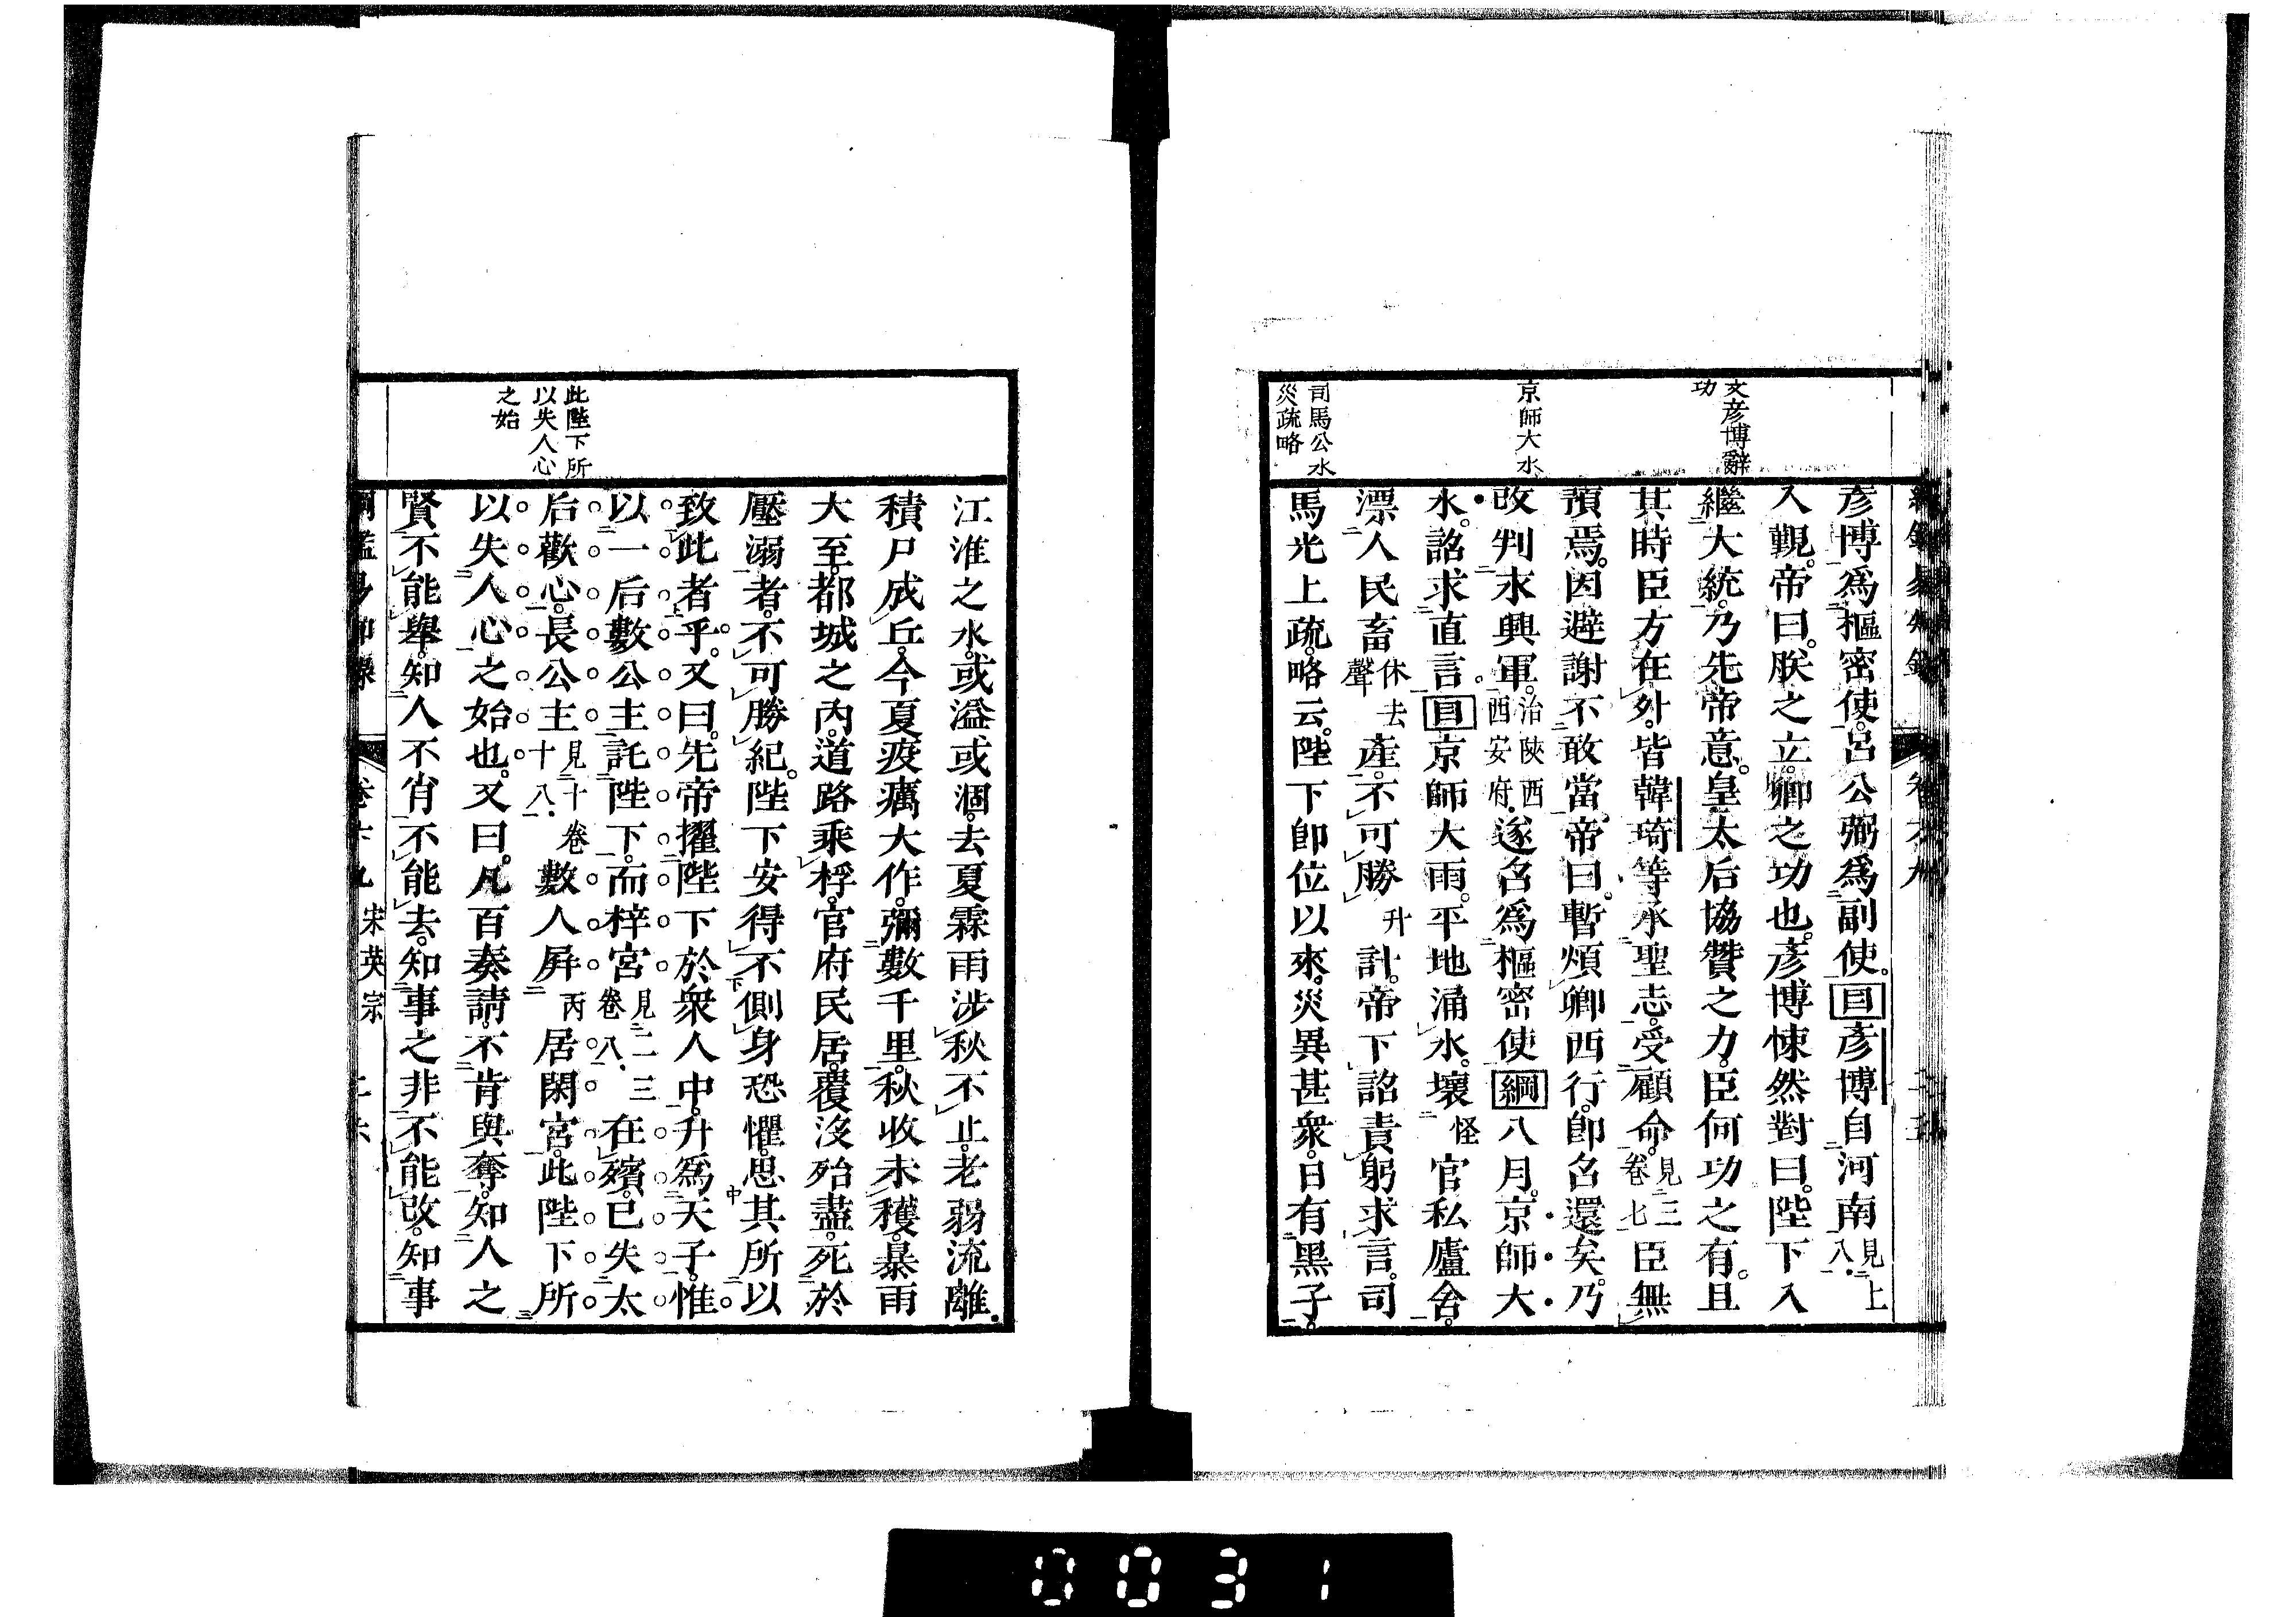 文彦博辭
功
京師大水
司馬公水
災疏略
彦博爲樞密使。呂公弼爲副使。目彦博自河南見上八
入覲。帝曰。朕之立。卿之功也。彦博悚然對曰。陛下入
繼大統。乃先帝意。皇太后協贊之力。臣何功之有。且
其時臣方在外。皆韓琦等承聖志。受顧命。見三卷七臣無
預焉。因避謝不敢當。帝曰。暫煩卿西行。卽召還矣。乃
改判永興軍。治陝西西安府。遂召爲樞密使綱八月。京師大
水。詔求直言。目京師大雨。平地涌水。壞怪官私廬舍。
漂人民畜休去聲產。不可勝升計。帝下詔責躬求言。司
馬光上疏。略云。陛下卽位以來。災異甚衆。日有黑子。
此陛下所
以失人心
之始
江淮之水。或溢或涸。去夏霖雨涉秋不止。老弱流離。
積尸成丘。今夏疫癘大作。彌數千里。秋收未穫。暴雨
大至。都城之內。道路乘桴。官府民居。覆沒殆盡。死於
壓溺者。不可勝紀。陛下安得不側身恐懼。思其所以
致此者乎。又曰。先帝擢陛下於衆人中。升爲天子。惟
以一后數公主託陛下。而梓宮見二三卷八在殯。已失太
后歡心。長公主見十卷十八數人屛丙居閑宮。此陛下所
以失人心之始也。又曰。凡百奏請。不肯與奪。知人之
賢不能舉。知人不肖不能去。知事之非不能改。知事
宋英宗
0031